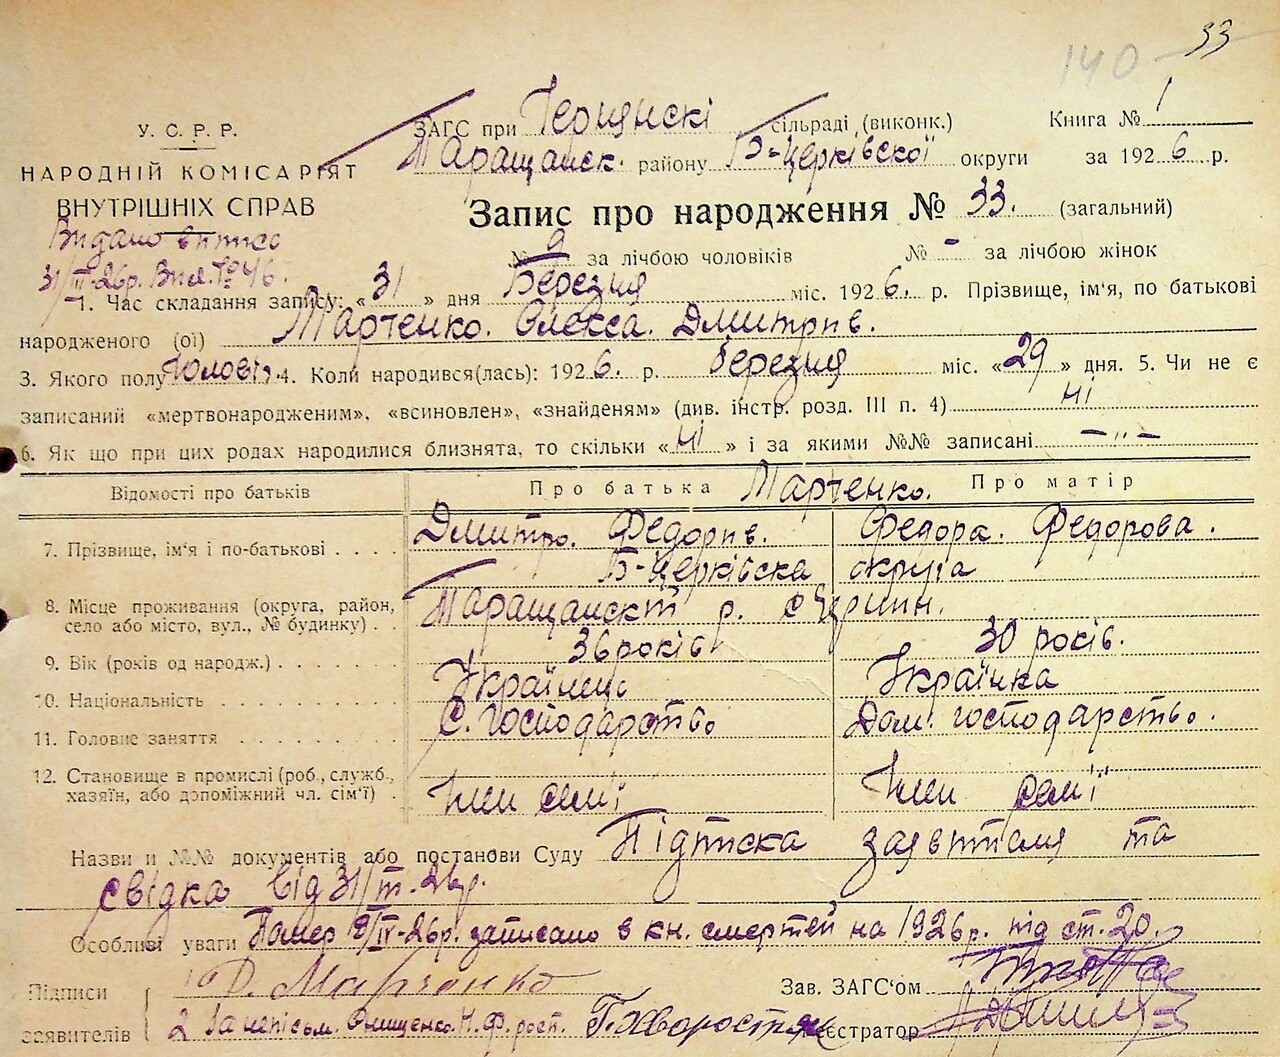 140 33
У. С. Р. Р.
НАРОДНІЙ КОМІСАРІЯТ
ВНУТРІШНІХ СПРАВ
Видано виписо
31/III-26р. Вип. №46.
ЗАГС при сільраді (виконк.) Книга № 1
Таращанськ. району Б-Церківської округи за 1926 р.
Запис про народження № 33. (загальний)
№ 9 за лічбою чоловіків № - за лічбою жінок
1. Час складання запису: «31» дня Березня міс. 1926. р. Прізвище, ім'я, по батькові
народженого (ої) Марченко. Олекса. Дмитрів.
3. Якого полу Чоловіч. 4. Коли народився(лась): 1926. р. березня міс. «29» дня. 5. Чи не є
записаний «мертвонародженим», «всиновлен», «знайденям» (див. інстр. розд. III п. 4) ні
6. Як що при цих родах народилися близнята, то скільки «ні» і за якими №№ записані -„-
Відомості про батьків Про батька Марченко. Про матір
7. Прізвище, ім'я і по-батькові Дмитро. Федорів. Федора. Федорова.
Б-Церківська округа
8. Місце проживання (округа, район, село або місто, вул., № будинку) Таращанськ р.
9. Вік (років од народж.) 36 років 30 років.
10. Національність Українець Українка
11. Головне заняття С. господарство Дом. господарство.
12. Становище в промислі (роб., служб., хазяїн, або допоміжний чл. сім'ї) Член сем'ї Член сем'ї
Назви и №№ документів або постанови Суду Підписка заявителя та
свідка від 31/III-26р.
Особливі уваги Помер 9/IV-26р. записано в кн. смертей на 1926р. під ст. 20.
Підписи заявителів 1) Д. Марченко Зав. ЗАГС'ом
2 За непісьм. Онищенко Н. Ф. росп. Реєстратор